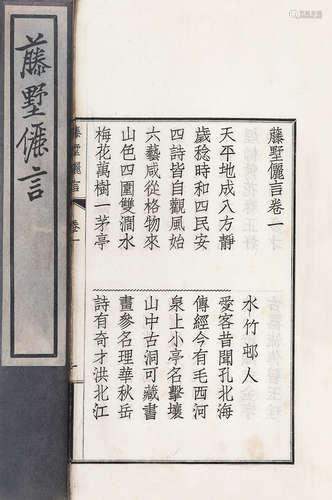 藤墅儷言
藤墅儷言卷一
水竹邨人
天平地成八方靜
愛客昔聞孔北海
歲稔時和四民安
傳經今有毛西河
四詩皆自觀風始
泉上小亭名擊壤
六藝咸從格物來
山中古洞可藏書
山色四圍雙澗水
畫參名理華秋岳
梅花萬樹一茅亭
詩有奇才洪北江
藤墅儷言 卷一
一